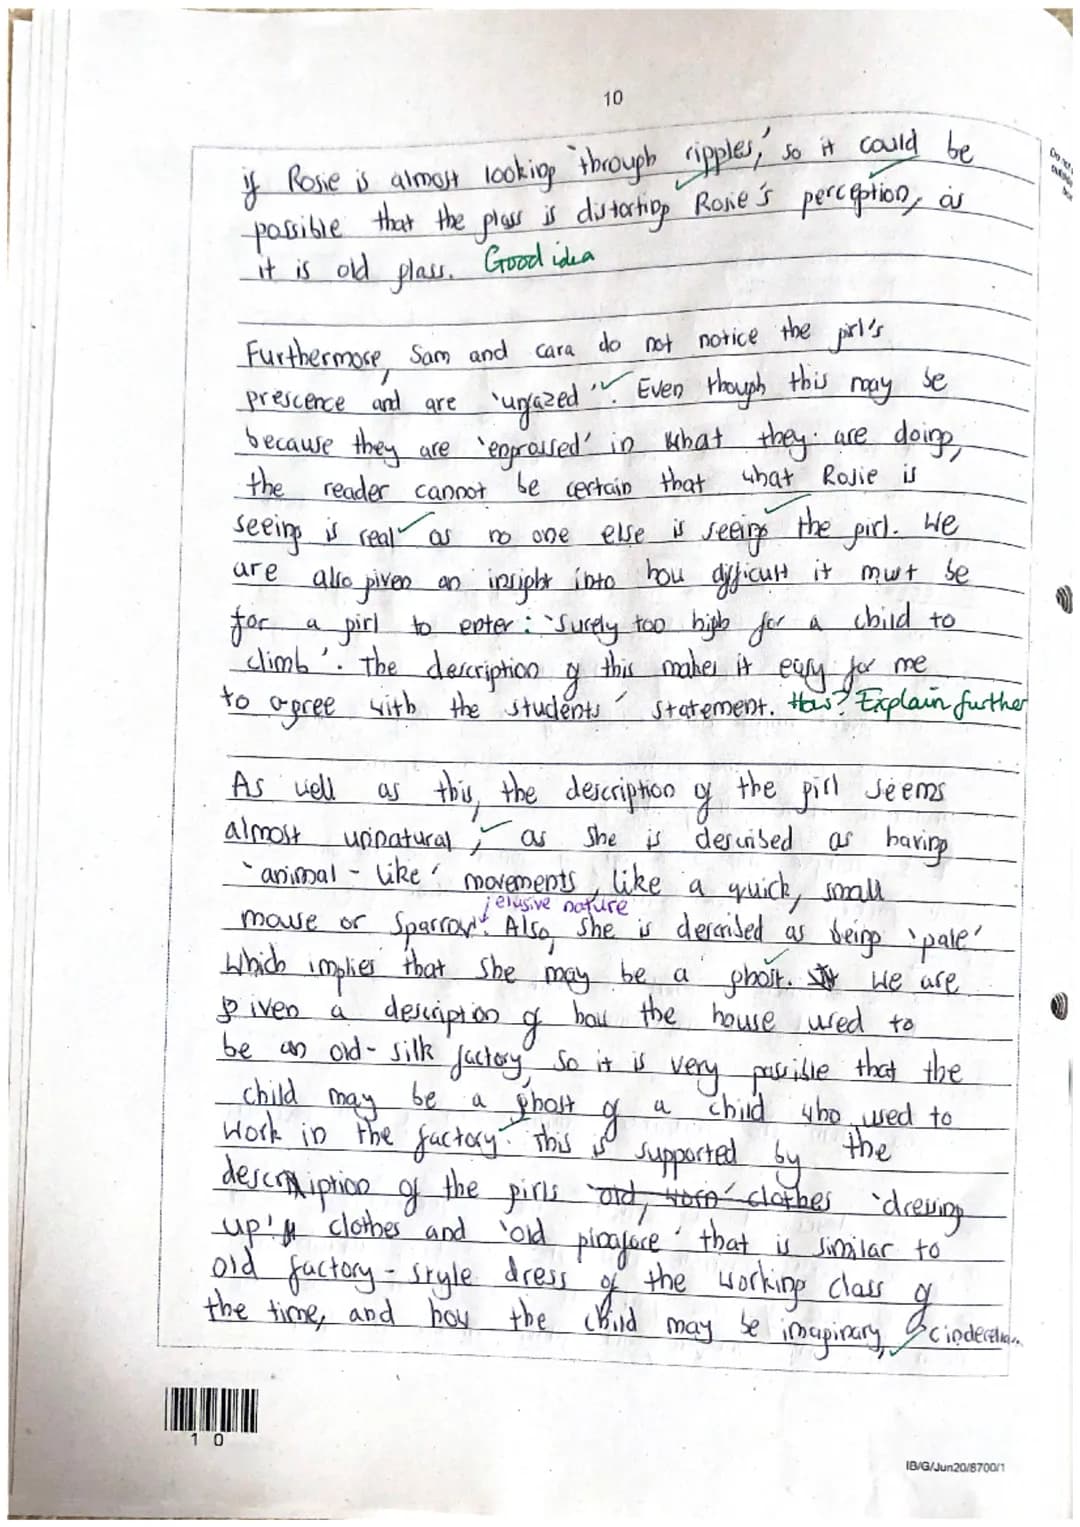 10
if Rosie is almost looking 'through ripples,' so it could be
possible that the glass is distorting Rosie's perception, as
it is old glass. Good idea
Furthermore, Sam and Cara do not notice the girl's
prescence and are 'unfazed'. Even though this may be
because they are 'engrossed' in what they are doing,
the reader cannot be certain that what Rosie is
seeing is real as no one else is seeing the girl. We
are also given an insight into how difficult it must be
for a girl to enter: 'Surely too high for a child to
climb'. The description of this makes it easy for me
to agree with the students' statement. How? Explain further
As well as this, the description of the girl seems
almost unnatural, as she is described as having
'animal-like' movements, like a quick, small
elusive nature
mouse or Sparrow. Also, she is described as being 'pale'
which implies that she may be a ghost. We are
given a description of how the house used to
be an old-silk factory, so it is very possible that the
child may be a ghost of a child who used to
work in the factory. This is supported by the
description of the girls 'old, worn' clothes 'dressing
up' clothes and 'old pinafore' that is similar to
old factory-style dress of the working class of
the time, and how the child may be imaginary,
Do not
outside
box
1 0
IB/G/Jun20/8700/1